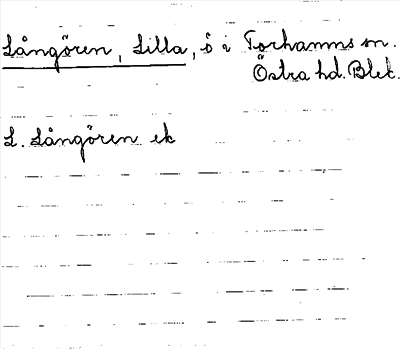 Långören, Lilla, ö i Torhamns sn.
Östra hd. Blek.
L. Långören ek